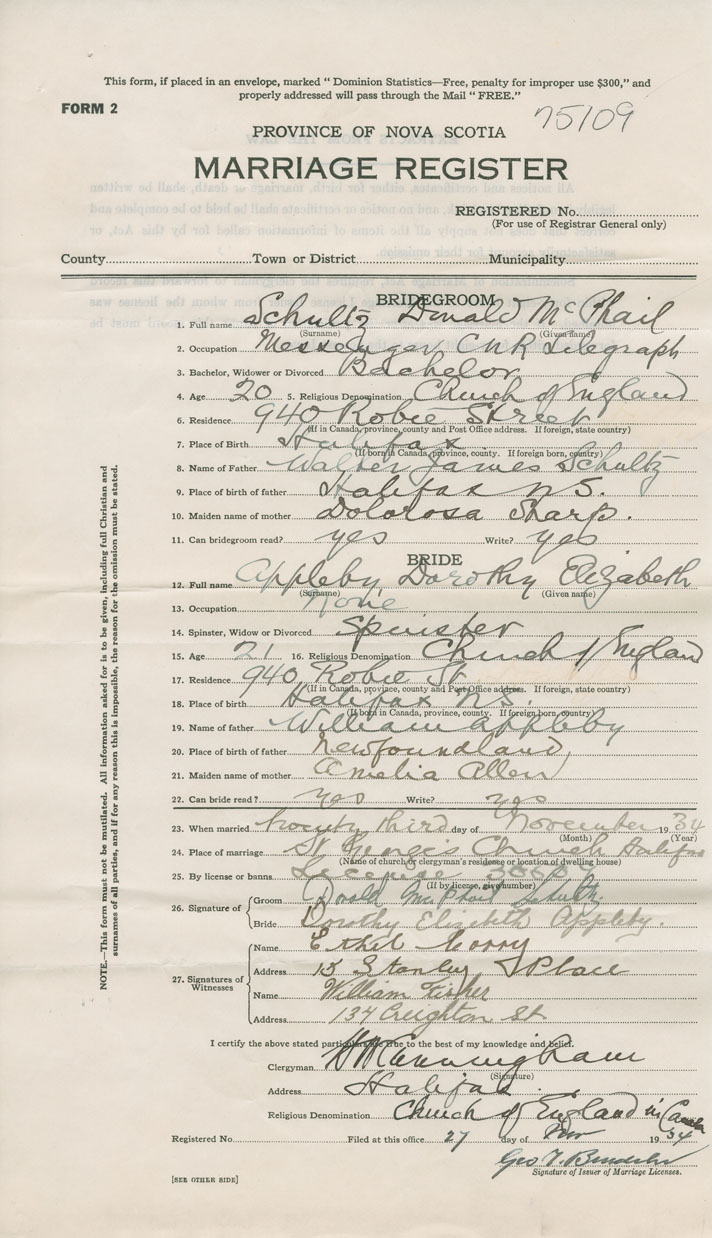 This form, if placed in an envelope, marked " Dominion Statistics—Free, penalty for improper use $300," and
properly addressed will pass through the Mail " FREE."
FORM 2
75109
PROVINCE OF NOVA SCOTIA
MARRIAGE REGISTER
REGISTERED No.
(For use of Registrar General only)
County Town or District Municipality
BRIDEGROOM
1. Full name Schultz Donald McPhail
(Surname) (Given name)
2. Occupation Messenger CNR Telegraph
3. Bachelor, Widower or Divorced Bachelor
4. Age 20 5. Religious Denomination Church of England
6. Residence 940 Robie Street
(If in Canada, province, county and Post Office address. If foreign, state country)
7. Place of Birth Halifax
(If born in Canada, province, county. If foreign born, country)
8. Name of Father Walter James Schultz
9. Place of birth of father Halifax N S.
10. Maiden name of mother Dolorosa Sharp.
11. Can bridegroom read? yes Write? yes
BRIDE
12. Full name Appleby, Dorothy Elizabeth
(Surname) (Given name)
13. Occupation None
14. Spinster, Widow or Divorced Spinster
15. Age 21 16. Religious Denomination Church of England
17. Residence 940 Robie St.
(If in Canada, province, county and Post Office address. If foreign, state country)
18. Place of birth Halifax N.S.
(If born in Canada, province, county. If foreign born, country)
19. Name of father William Appleby
20. Place of birth of father Newfoundland,
21. Maiden name of mother Amelia Allen
22. Can bride read? yes Write? yes
23. When married twenty third day of November 1934
(Month) (Year)
24. Place of marriage St George's Church Halifax
(Name of church, or clergyman's residence or location of dwelling house)
25. By license or banns License
(If by license, give number)
26. Signature of
Groom Donald McPhail Schultz
Bride Dorothy Elizabeth Appleby.
27. Signatures of Witnesses
Name Ethel Corry
Address 15 Stanley Place
Name William Fisher
Address 134 Creighton St
I certify the above stated particulars are true to the best of my knowledge and belief.
Clergyman H W Cunningham
(Signature)
Address Halifax.
Religious Denomination Church of England in Canada
Registered No. Filed at this office 27 day of Nov 1934
Geo T.
Signature of Issuer of Marriage Licenses.
[SEE OTHER SIDE]
NOTE.—This form must not be mutilated. All information asked for is to be given, including full Christian and
surnames of all parties, and if for any reason this is impossible, the reason for the omission must be stated.